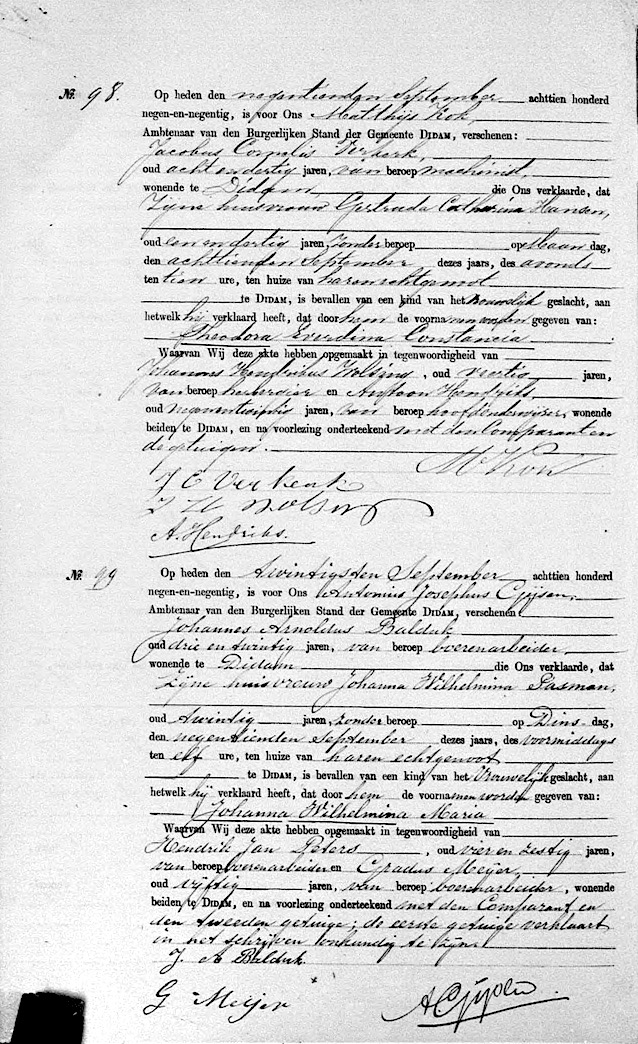 No. 98. Op heden den negentienden September achttien honderd
negen-en-negentig, is voor Ons Matthijs Kok,
Ambtenaar van den Burgerlijken Stand der Gemeente DIDAM, verschenen:
Jacobus Cornelis Verkerk,
oud acht en dertig jaren, van beroep machinist,
wonende te Didam die Ons verklaarde, dat
zijne huisvrouw Gertruda Catharina Hansen,
oud een en dertig jaren, zonder beroep op Maandag,
den achttienden September dezes jaars, des avonds
ten tien ure, ten huize van haren echtgenoot
te DIDAM, is bevallen van een kind van het vrouwelijk geslacht, aan
hetwelk hij verklaard heeft, dat door hem de voornamen worden gegeven van:
Theodora Everdina Constancia
Waarvan Wij deze akte hebben opgemaakt in tegenwoordigheid van
Johannes Hendrikus Wolsing, oud veertig jaren,
van beroep en Antoon Hendriks
oud jaren, van beroep hoofdonderwijzer, wonende
beiden te DIDAM, en na voorlezing onderteekend met den Comparant en
de getuigen.
M Kok
J C Verkerk
J H Wolsing
A. Hendriks.
No. 99 Op heden den twintigsten September achttien honderd
negen-en-negentig, is voor Ons Antonius Josephus Gijsen,
Ambtenaar van den Burgerlijken Stand der Gemeente DIDAM, verschenen
Johannes Arnoldus Balduk
oud drie en twintig jaren, van beroep boerenarbeider
wonende te Didam die Ons verklaarde, dat
zijne huisvrouw Johanna Wilhelmina Pasman,
oud twintig jaren, zonder beroep op Dins-dag,
den negentienden September dezes jaars, des voormiddags
ten elf ure, ten huize van haren echtgenoot
te DIDAM, is bevallen van een kind van het Vrouwelijk geslacht, aan
hetwelk hij verklaard heeft, dat door hem de voornamen worden gegeven van:
Johanna Wilhelmina Maria
Waarvan Wij deze akte hebben opgemaakt in tegenwoordigheid van
Hendrik Jan Peters, oud vier en zestig jaren,
van beroep boerenarbeider en Gradus Meijer,
oud vijftig jaren, van beroep boerenarbeider, wonende
beiden te DIDAM, en na voorlezing onderteekend met den Comparant en
den tweeden getuige; de eerste getuige verklaart
in het schrijven onkundig te zijn.
J. A Balduk
G Meijer
A Gijsen